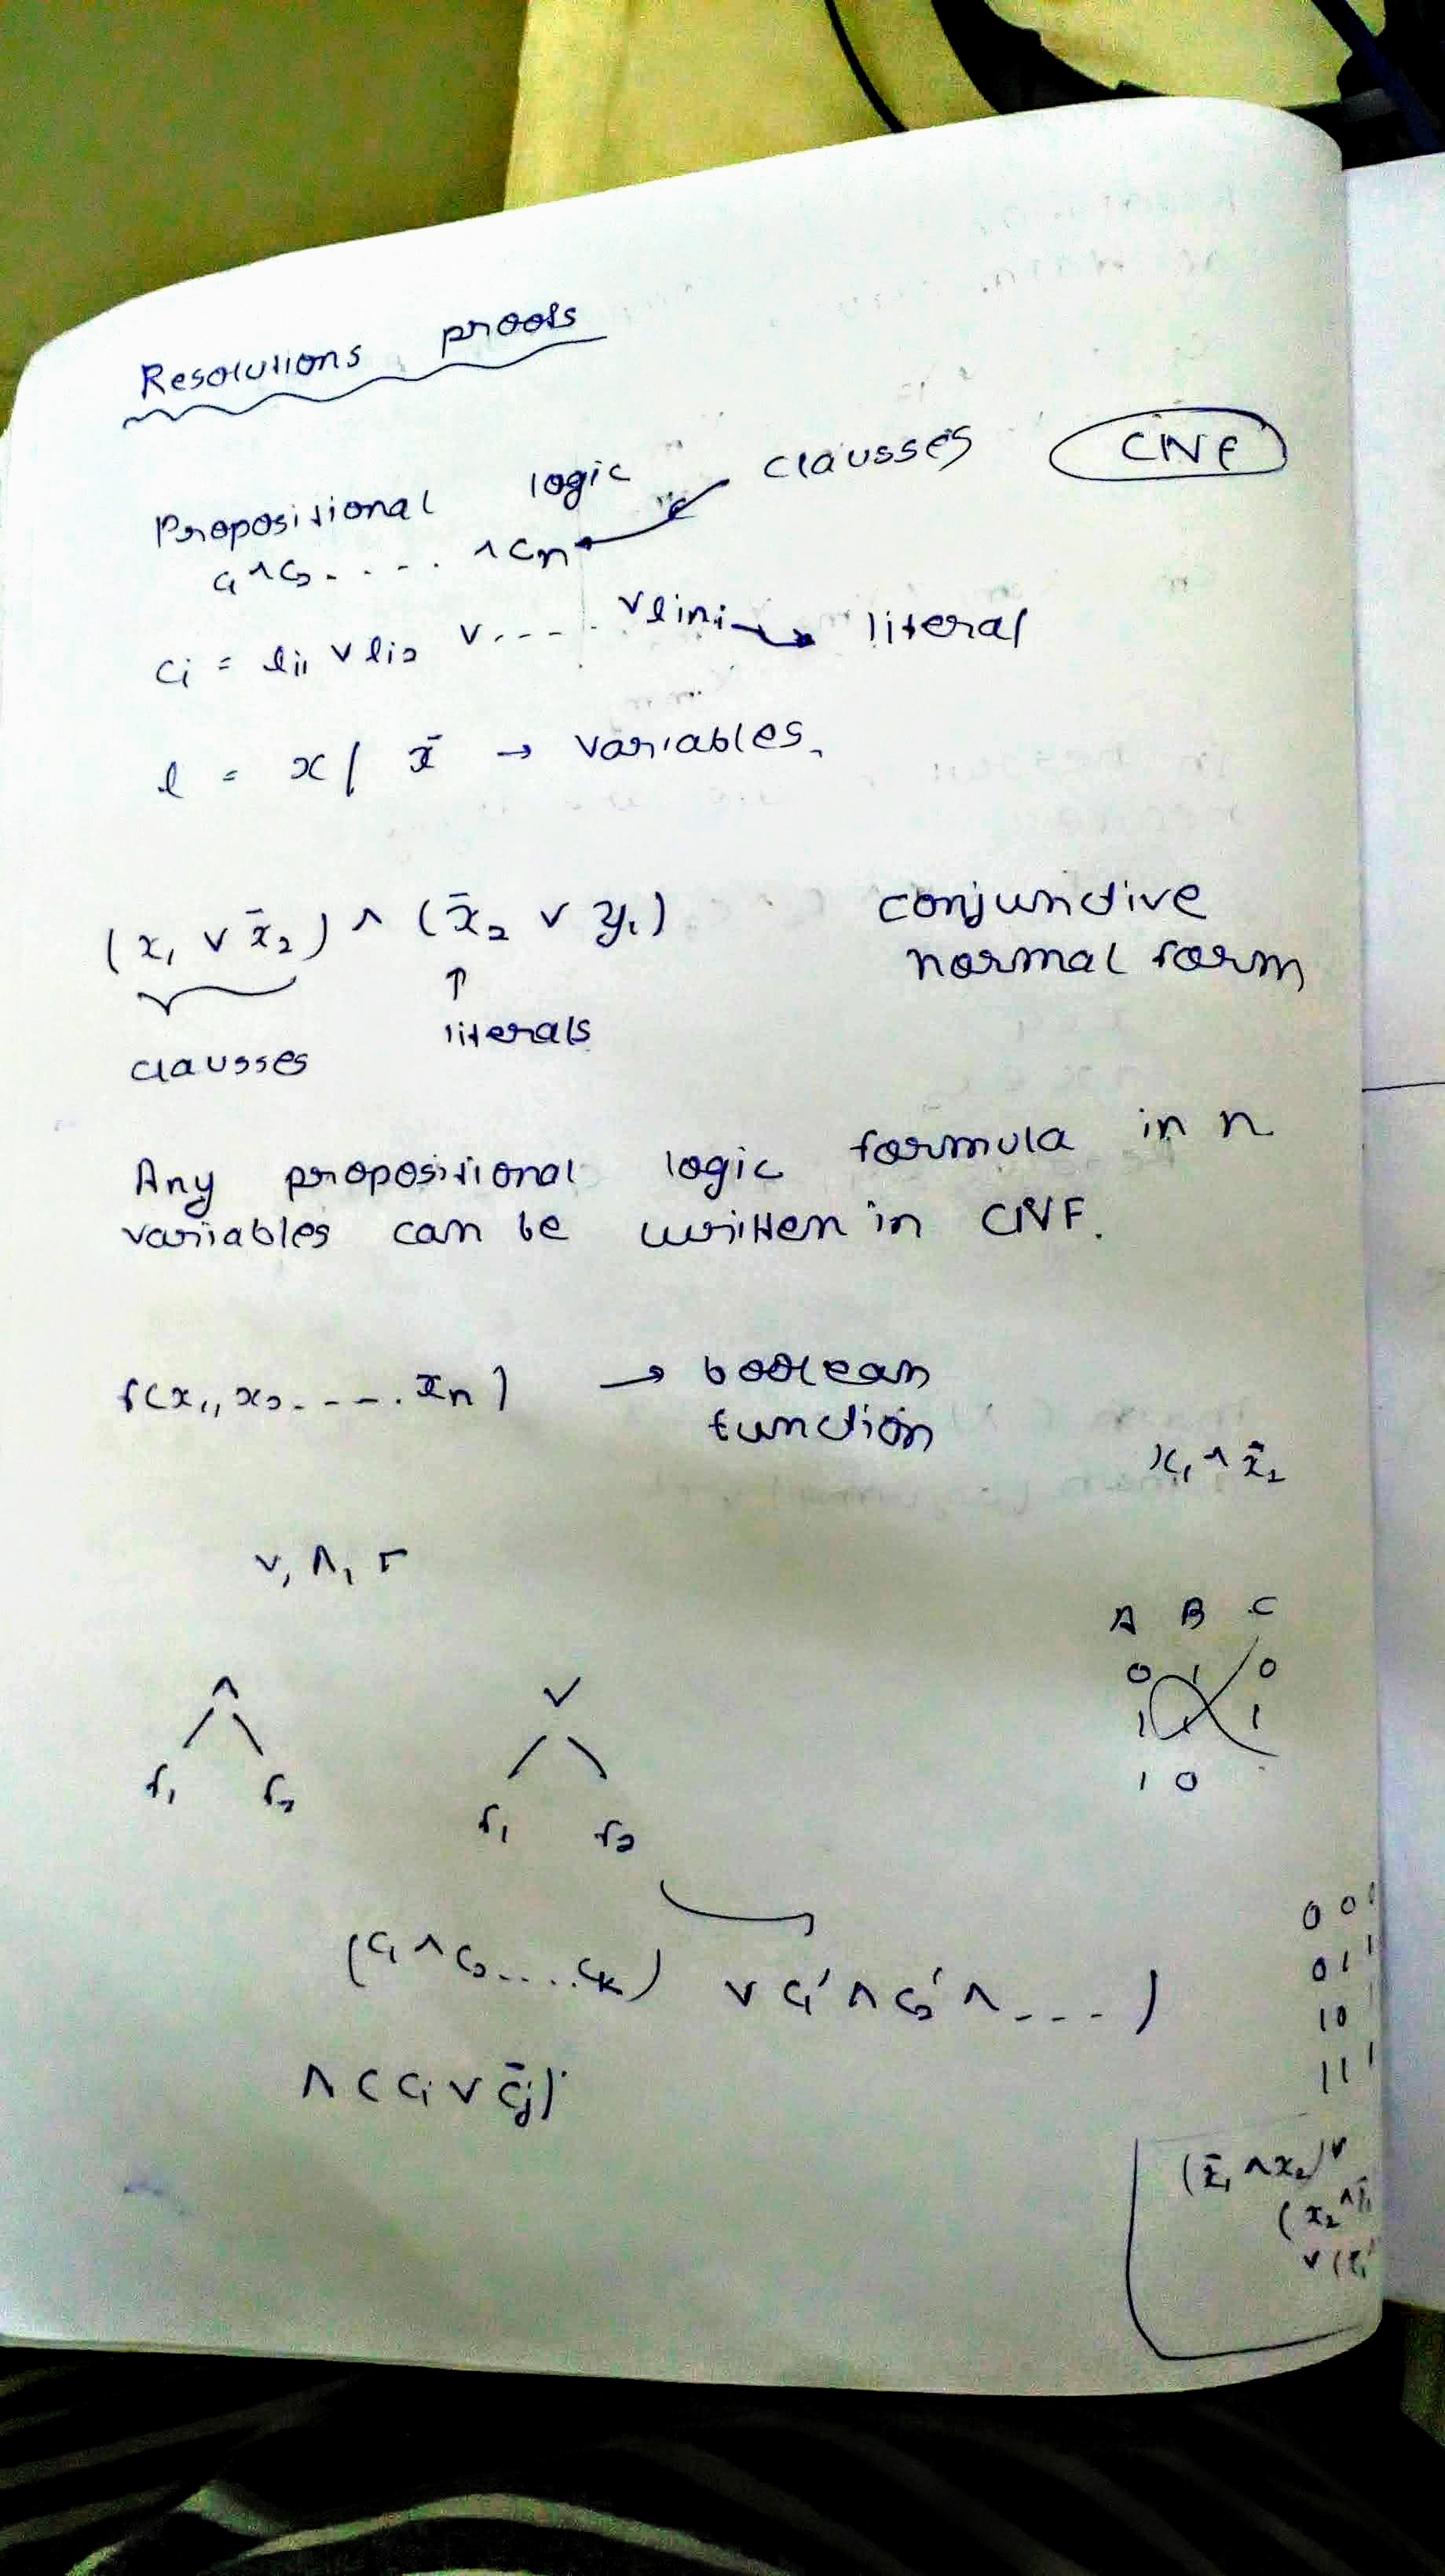 Resolutions proofs
Propositional logic clausses CNF
C₁ ∧ C₂ - . - . ∧ Cn
Ci = li₁ ∨ li₂ ∨ . - - - . ∨ lini → literal
l = x / x̄ → variables.
(x₁ ∨ x̄₂) ∧ (x̄₂ ∨ y₁) conjunctive
normal form
↑
literals
clausses
Any propositional logic formula in n
variables can be written in CNF.
f(x₁, x₂ - - - . xn) → boolean
function
x₁ ∧ x̄₂
∨, ∧, ¬
A B C
0 1 0
1 1 1
1 0
∧ ∨
f₁ f₂ f₁ f₂
(C₁ ∧ C₂ . . . . Ck) ∨ C₁' ∧ C₂' ∧ - - - )
0 0
0 1 1
1 0
1 1 1
∧ (Ci ∨ C̄j)
(x̄₁ ∧ x₂) ∨
(x₂ ∧
∨ (